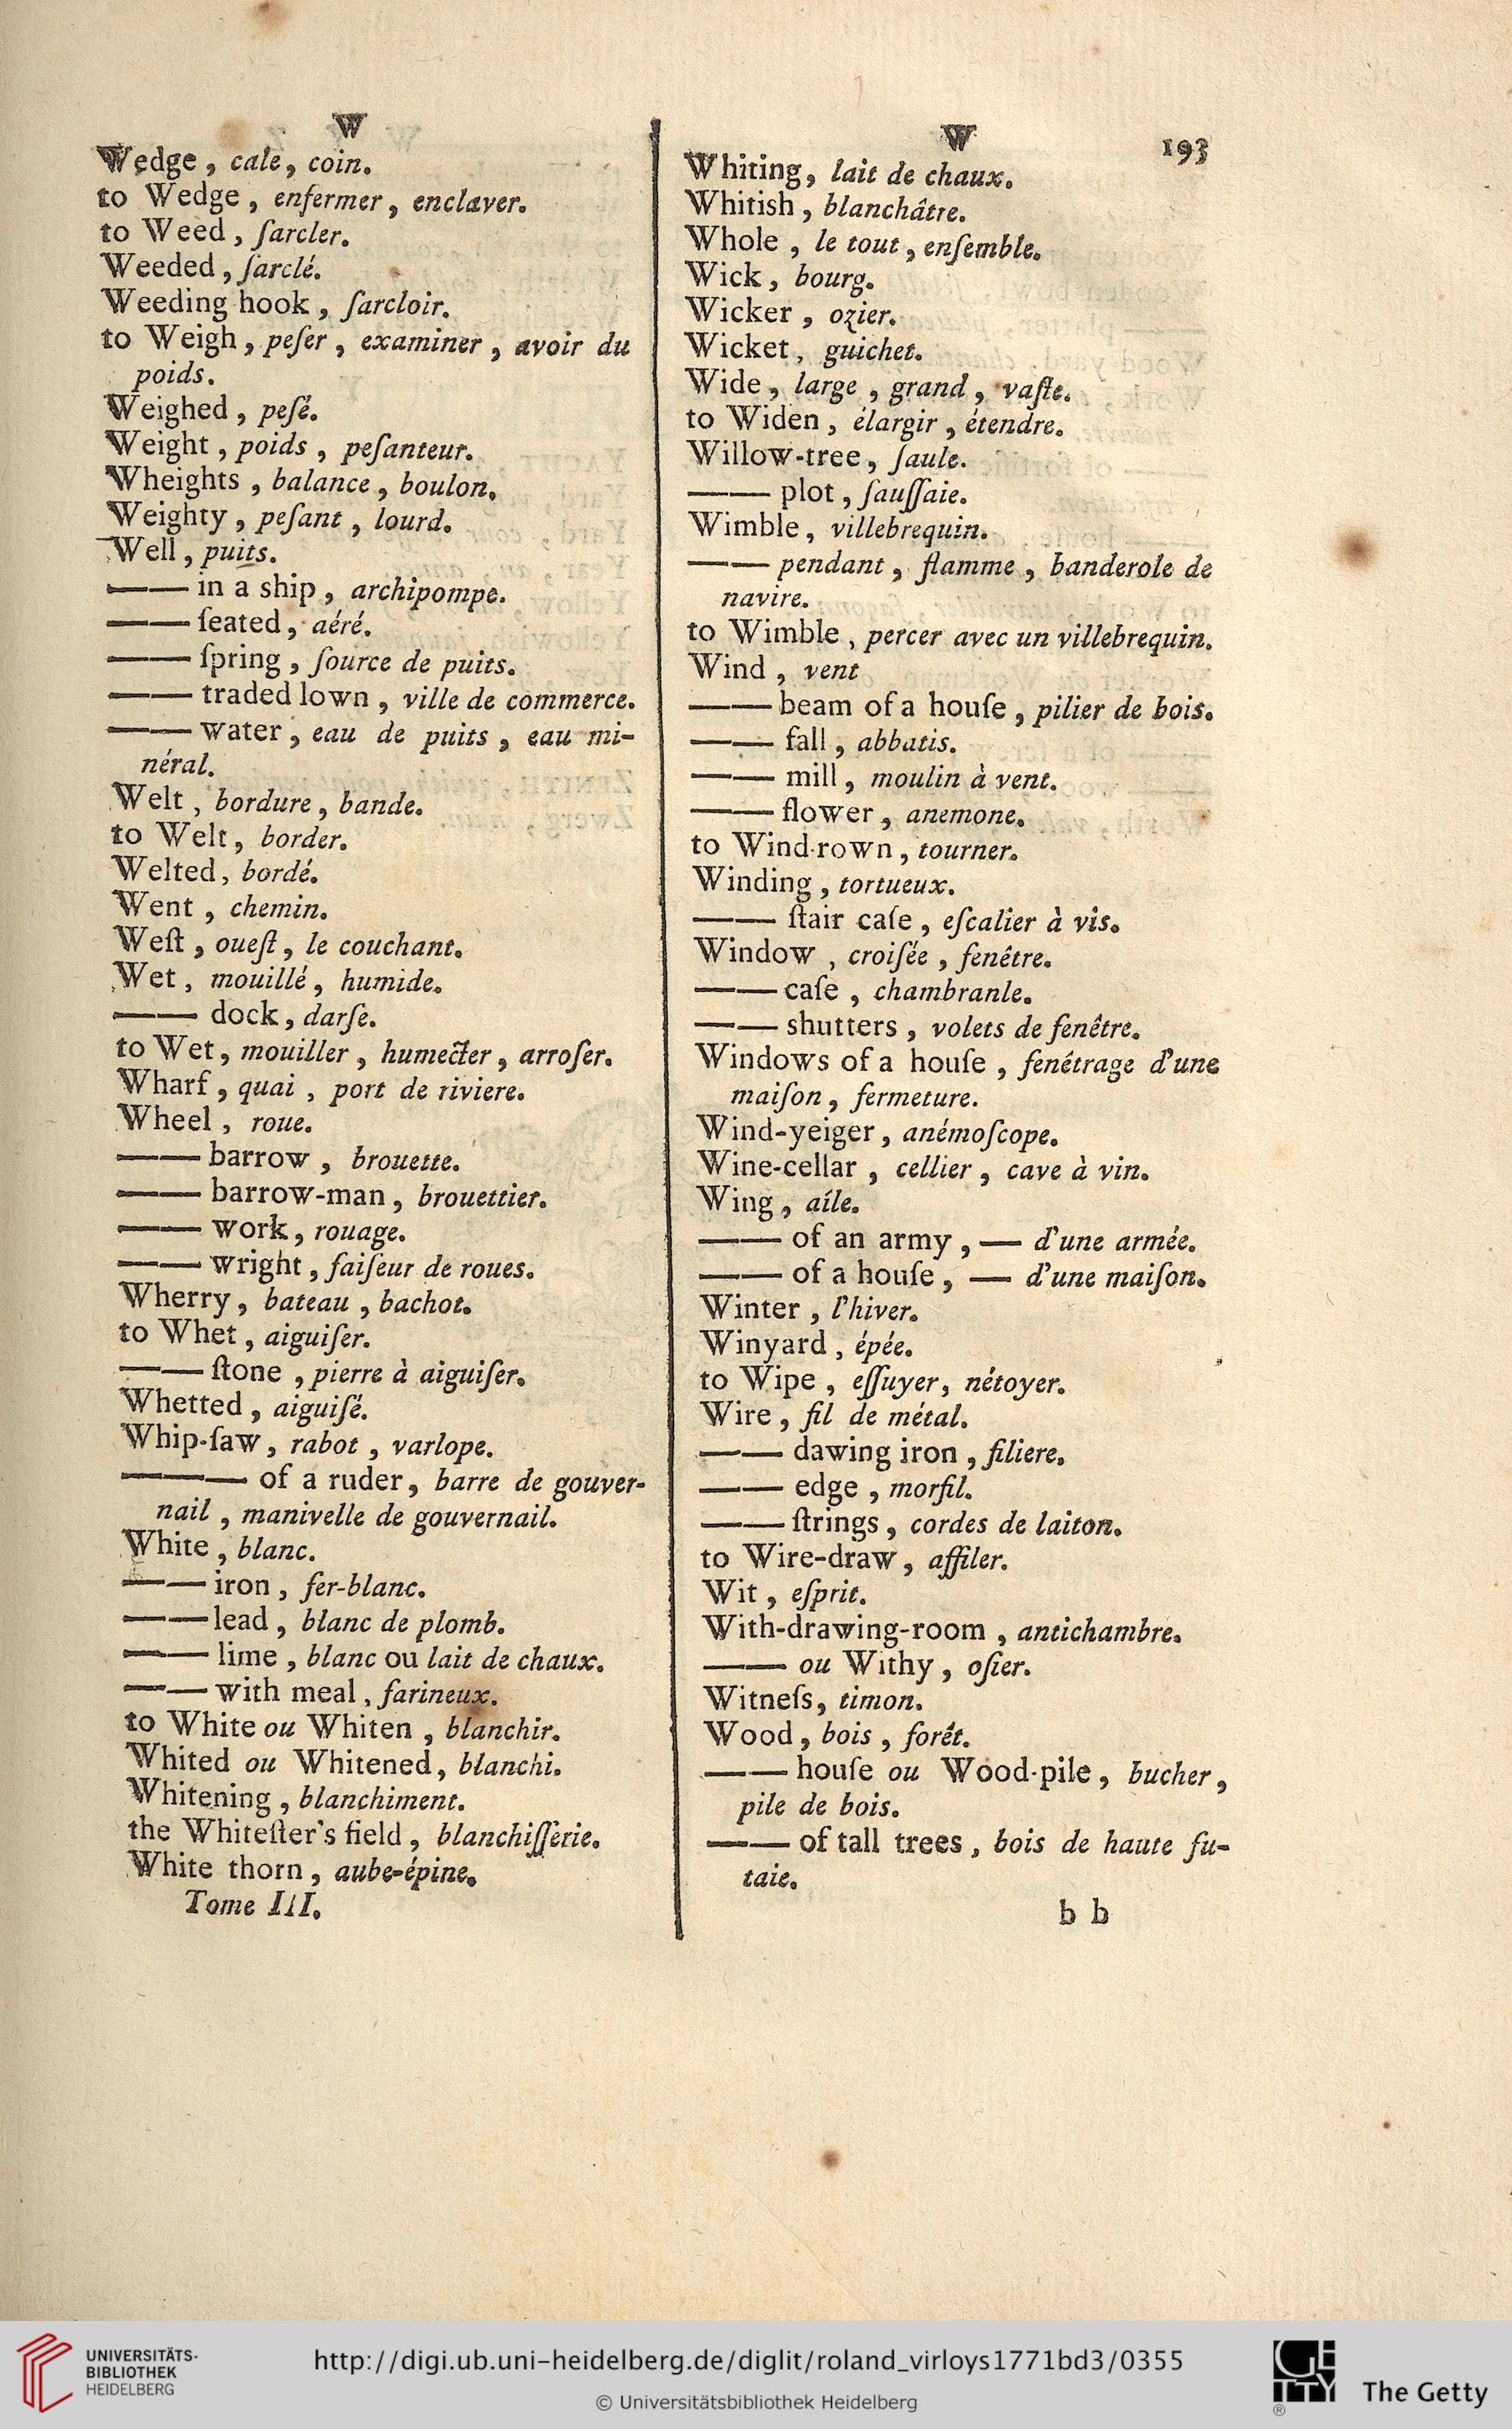 W
Wedge, cale, coin.
to Wedge, enfermer, enclaver.
to Weed, ſarcler.
Weeded, ſarclé.
Weeding hook, ſarcloir.
to Weigh, peſer, examiner, avoir du
poids.
Weighed, peſé.
Weight, poids, peſanteur.
Wheights, balance, boulon.
Weighty, peſant, lourd.
Well, puits.
—— in a ship, archipompe.
—— ſeated, aéré.
—— ſpring, ſource de puits.
—— traded lown, ville de commerce.
—— water, eau de puits, eau mi-
néral.
Welt, bordure, bande.
to Welt, border.
Welted, bordé.
Went, chemin.
Weſt, oueſt, le couchant.
Wet, mouillé, humide.
—— dock, darſe.
to Wet, mouiller, humecter, arroſer.
Wharf, quai, port de riviere.
Wheel, roue.
—— barrow, brouette.
—— barrow-man, brouettier.
—— work, rouage.
—— wright, faiſeur de roues.
Wherry, bateau, bachot.
to Whet, aiguiſer.
—— ſtone, pierre à aiguiſer.
Whetted, aiguiſé.
Whip-ſaw, rabot, varlope.
——— of a ruder, barre de gouver-
nail, manivelle de gouvernail.
White, blanc.
—— iron, fer-blanc.
—— lead, blanc de plomb.
—— lime, blanc ou lait de chaux.
—— with meal, farineux.
to White ou Whiten, blanchir.
Whited ou Whitened, blanchi.
Whitening, blanchiment.
the Whiteſter's field, blanchiſſerie.
White thorn, aube-épine.
Tome III.
W 193
Whiting, lait de chaux.
Whitish, blanchâtre.
Whole, le tout, enſemble.
Wick, bourg.
Wicker, ozier.
Wicket, guichet.
Wide, large, grand, vaſte.
to Widen, élargir, étendre.
Willow-tree, ſaule.
—— plot, ſauſſaie.
Wimble, villebrequin.
—— pendant, flamme, banderole de
navire.
to Wimble, percer avec un villebrequin.
Wind, vent
—— beam of a houſe, pilier de bois.
—— fall, abbatis.
—— mill, moulin à vent.
—— flower, anemone.
to Wind-rown, tourner.
Winding, tortueux.
—— ſtair caſe, eſcalier à vis.
Window, croiſée, fenêtre.
—— caſe, chambranle.
—— shutters, volets de fenêtre.
Windows of a houſe, fenêtrage d'une
maiſon, fermeture.
Wind-yeiger, anémoſcope.
Wine-cellar, cellier, cave à vin.
Wing, aîle.
—— of an army, — d'une armée.
—— of a houſe, — d'une maiſon.
Winter, l'hiver.
Winyard, épée.
to Wipe, eſſuyer, nétoyer.
Wire, fil de métal.
—— dawing iron, filiere.
—— edge, morfil.
—— ſtrings, cordes de laiton.
to Wire-draw, affiler.
Wit, eſprit.
With-drawing-room, antichambre.
—— ou Withy, oſier.
Witneſs, timon.
Wood, bois, forêt.
—— houſe ou Wood-pile, bucher,
pile de bois.
—— of tall trees, bois de haute fu-
taie.
b b
UNIVERSITÄTS-
BIBLIOTHEK
HEIDELBERG
http://digi.ub.uni-heidelberg.de/diglit/roland_virloys1771bd3/0355
© Universitätsbibliothek Heidelberg
The Getty